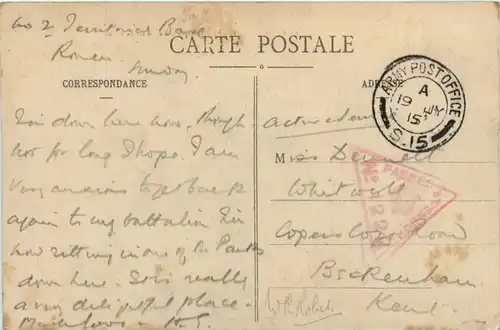 No 2 Territorial Base
Rouen
Sunday
CARTE POSTALE
CORRESPONDANCE
ADRESSE
ARMY POST OFFICE
A
19 JY
15
S.15
PASSED
CENSOR
No 1220
I'm down here now, though
not for long I hope. I am
very anxious to get back
again to my battalion. I'm
now sitting in one of the Parks
down here. It is really
a very delightful place -
Much love
Miss Dennett
Whitwell
Copers Cope Road
Beckenham
Kent